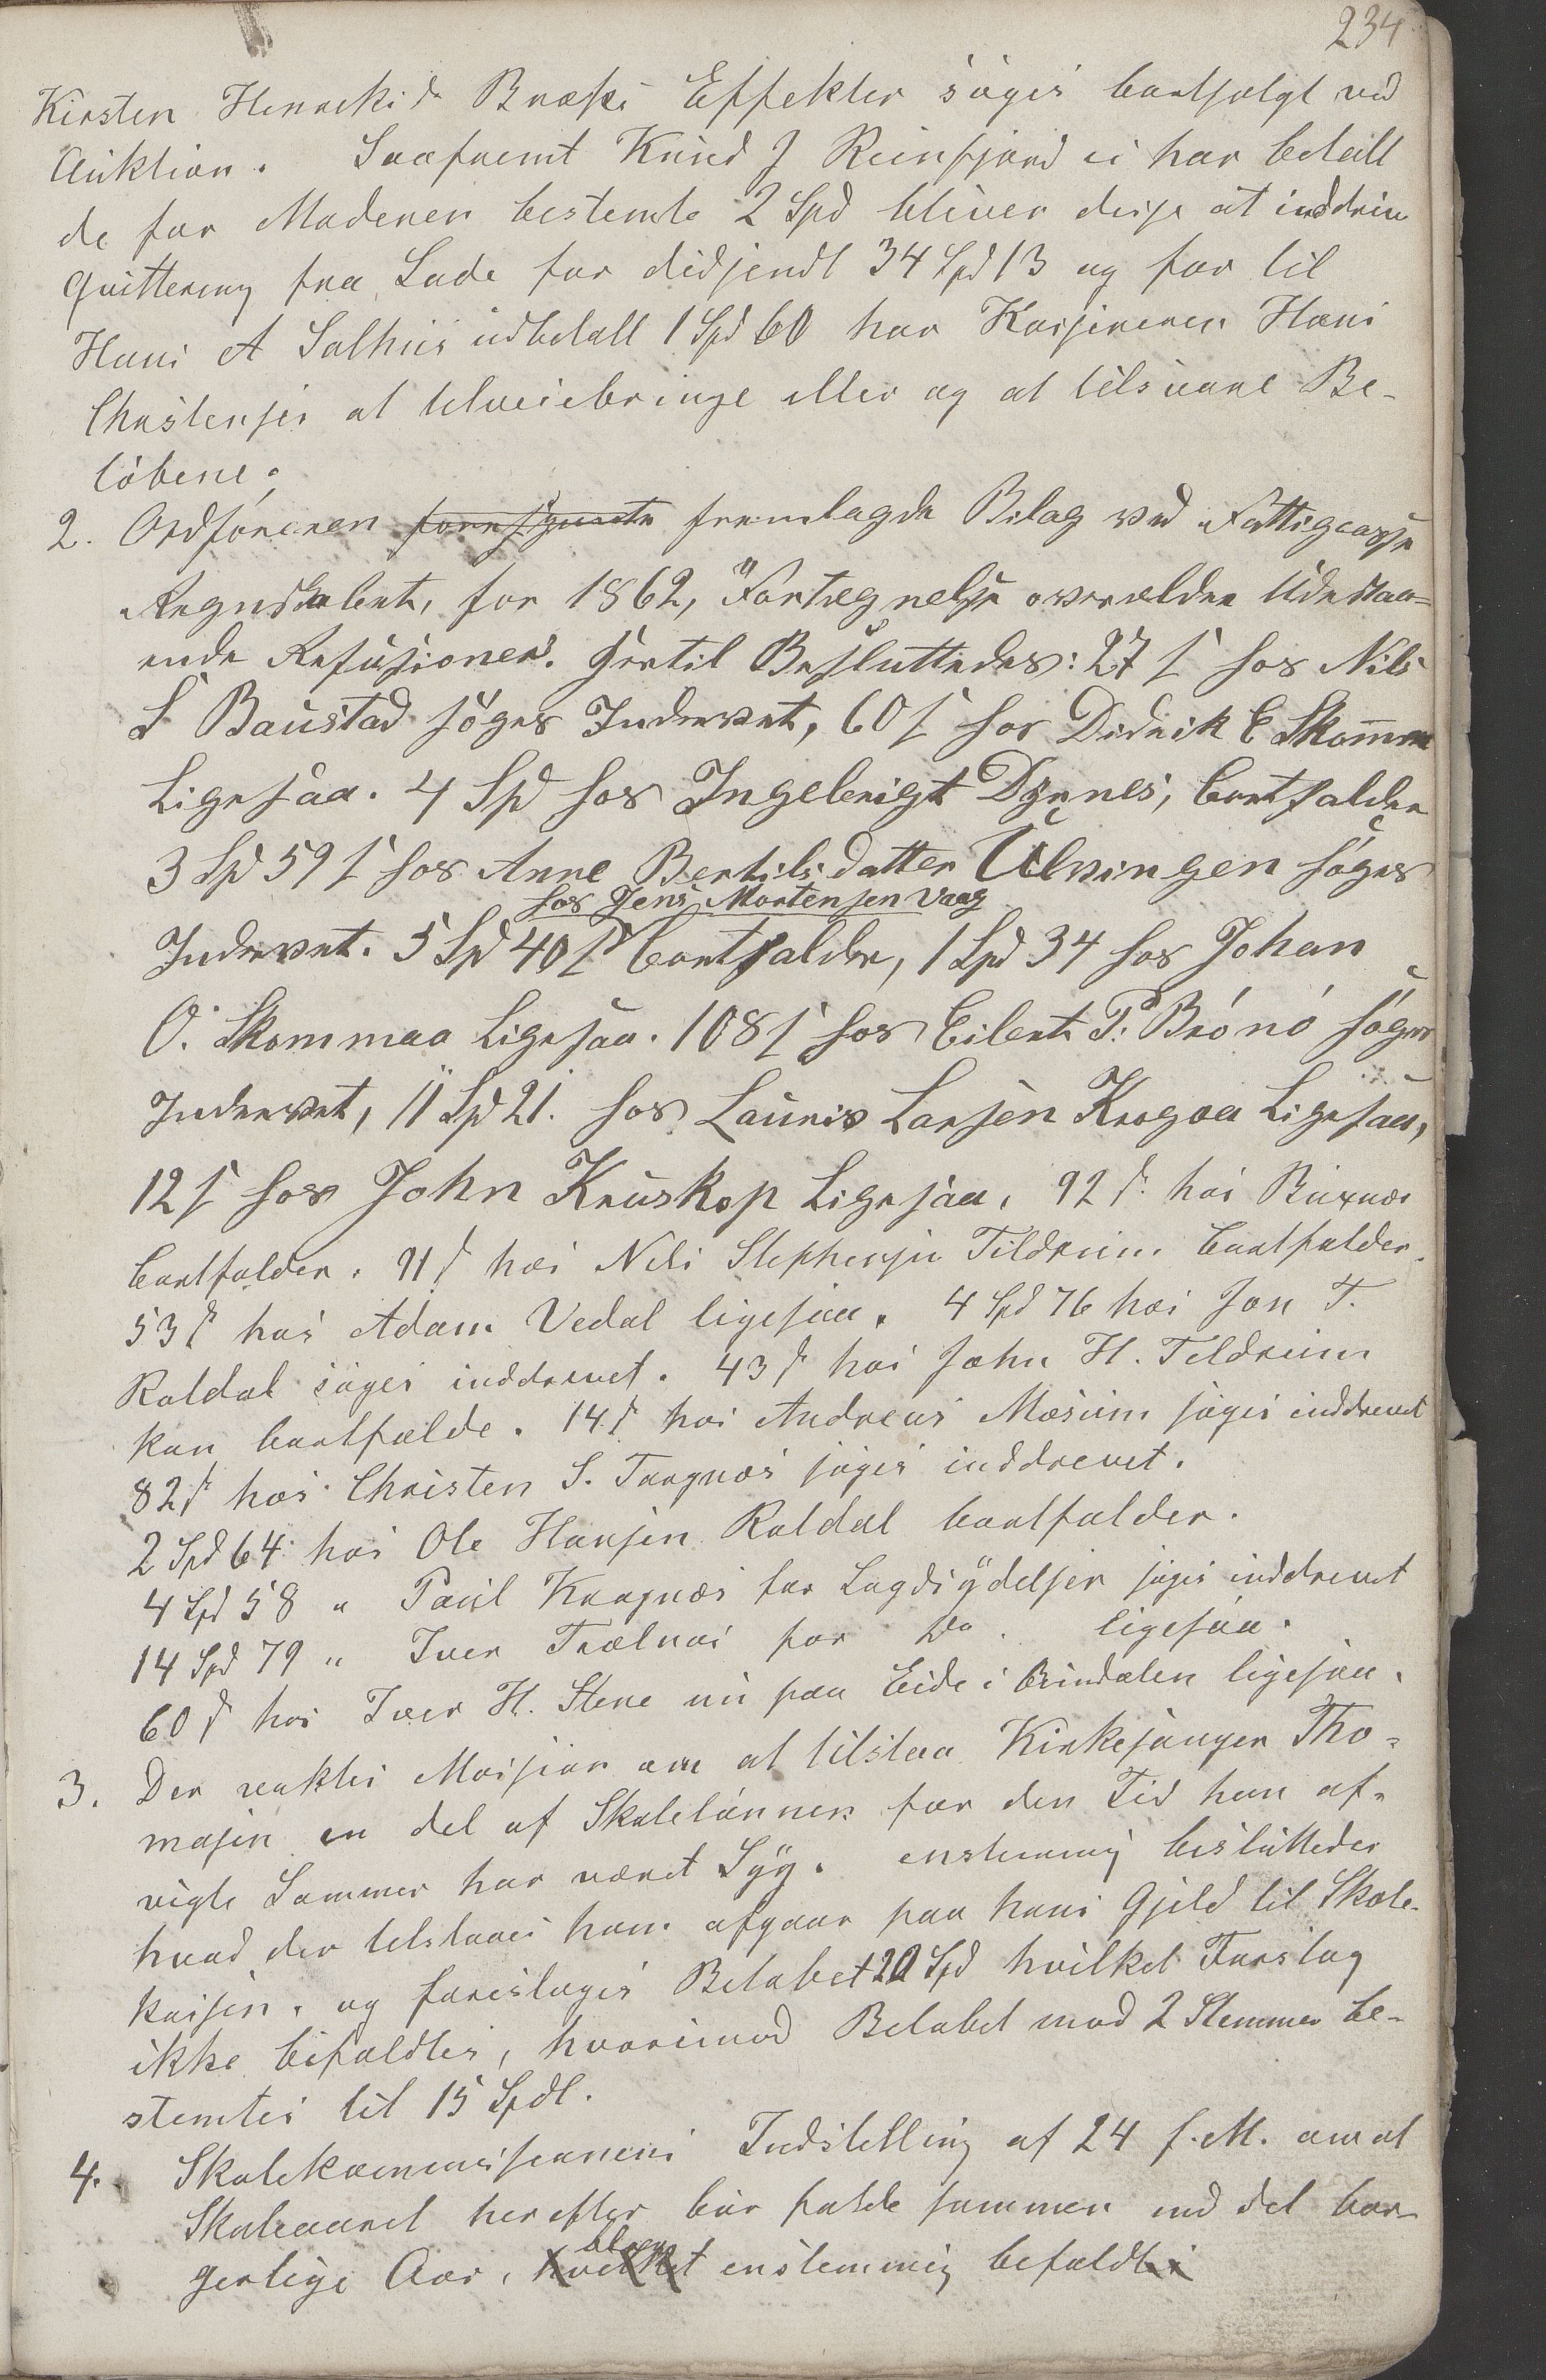 234
Kirsten Henriksd Bræks Effekter söges bortsolgt ved
Auktion. Saafremt Knud J Reinfjord ei har betalt
de for Maderen bestemte 2 Spd bliver disse at inddrive
Quittering fra Lade for didsendt 34 Spd 13 og for til
Hans A Salhus udbetalt 1 Spd 60 har Kassereren Hans
Christensen at tilveiebringe eller og at tilsvare Be-
löbene.
2. Ordföreren fremlagde Bilag ved Fattigcasse
Regnskabet, for 1862, "Fortegnelse over ældre Udestaa=
ende Refusioner". Hertil Besluttedes: 27 s hos Nils
S Baustad söges Inddrevet, 60 s hos Didrik E Skomma
Ligesaa. 4 Spd hos Ingebrigt Dyrnes, bortfalder
3 Spd 59 s hos Anne Bertilsdatter Ulvingen söges
hos Jens Mortensen Vaag
Inddrevet. 5 Spd 40 s bortfalder, 1 Spd 34 hos Johan
O. Skommaa Ligesaa. 108 s hos Eilert P. Brönö söges
Inddrevet, 11 Spd 21. hos Lauris Larsen Krogaa Ligesaa,
12 s hos John Kruskop Ligesaa, 92 s. hos
bortfalder. 91 s hos Nils Stephensen Tildrum bortfalder.
53 s hos Adam Vedal ligesaa. 4 Spd 76 hos Jon T.
Kaldal söges inddrevet. 43 s hos John H. Tildrum
kan bortfalde. 14 s hos Andreas Mosum söges inddrevet
82 s hos Christen S. Torgnæs söges inddrevet.
2 Spd 64 hos Ole Hansen Kaldal bortfalder.
4 Spd 58 " Paul Kragnæs for Lægdsydelser söges inddrevet
14 Spd 79 " Iver Trælnæs for Do. ligesaa.
60 s hos Iver H. Stene nu paa Eide i Bindalen ligesaa.
3. Der vaktes Mossion om at tilstaa Kirkesanger Tho=
masen en del af Skolelönnen for den Tid han af=
vigte Sommer har været Syg. enstemmig besluttedes
hvad der tilstaaes ham afgaar paa hans Gjeld til Skole-
kassen, og foresloges Belöbet 20 Spd hvilket Forslag
ikke bifaldtes, hvorimod Belöbet mod 2 Stemmer be-
stemtes til 15 Spdl.
4. Skolekommissionens Indstilling af 24 f.M. om at
Skoleaaret herefter bör falde sammen med det bor-
blev
gerlige Aar, hvilket enstemmig befaldtes